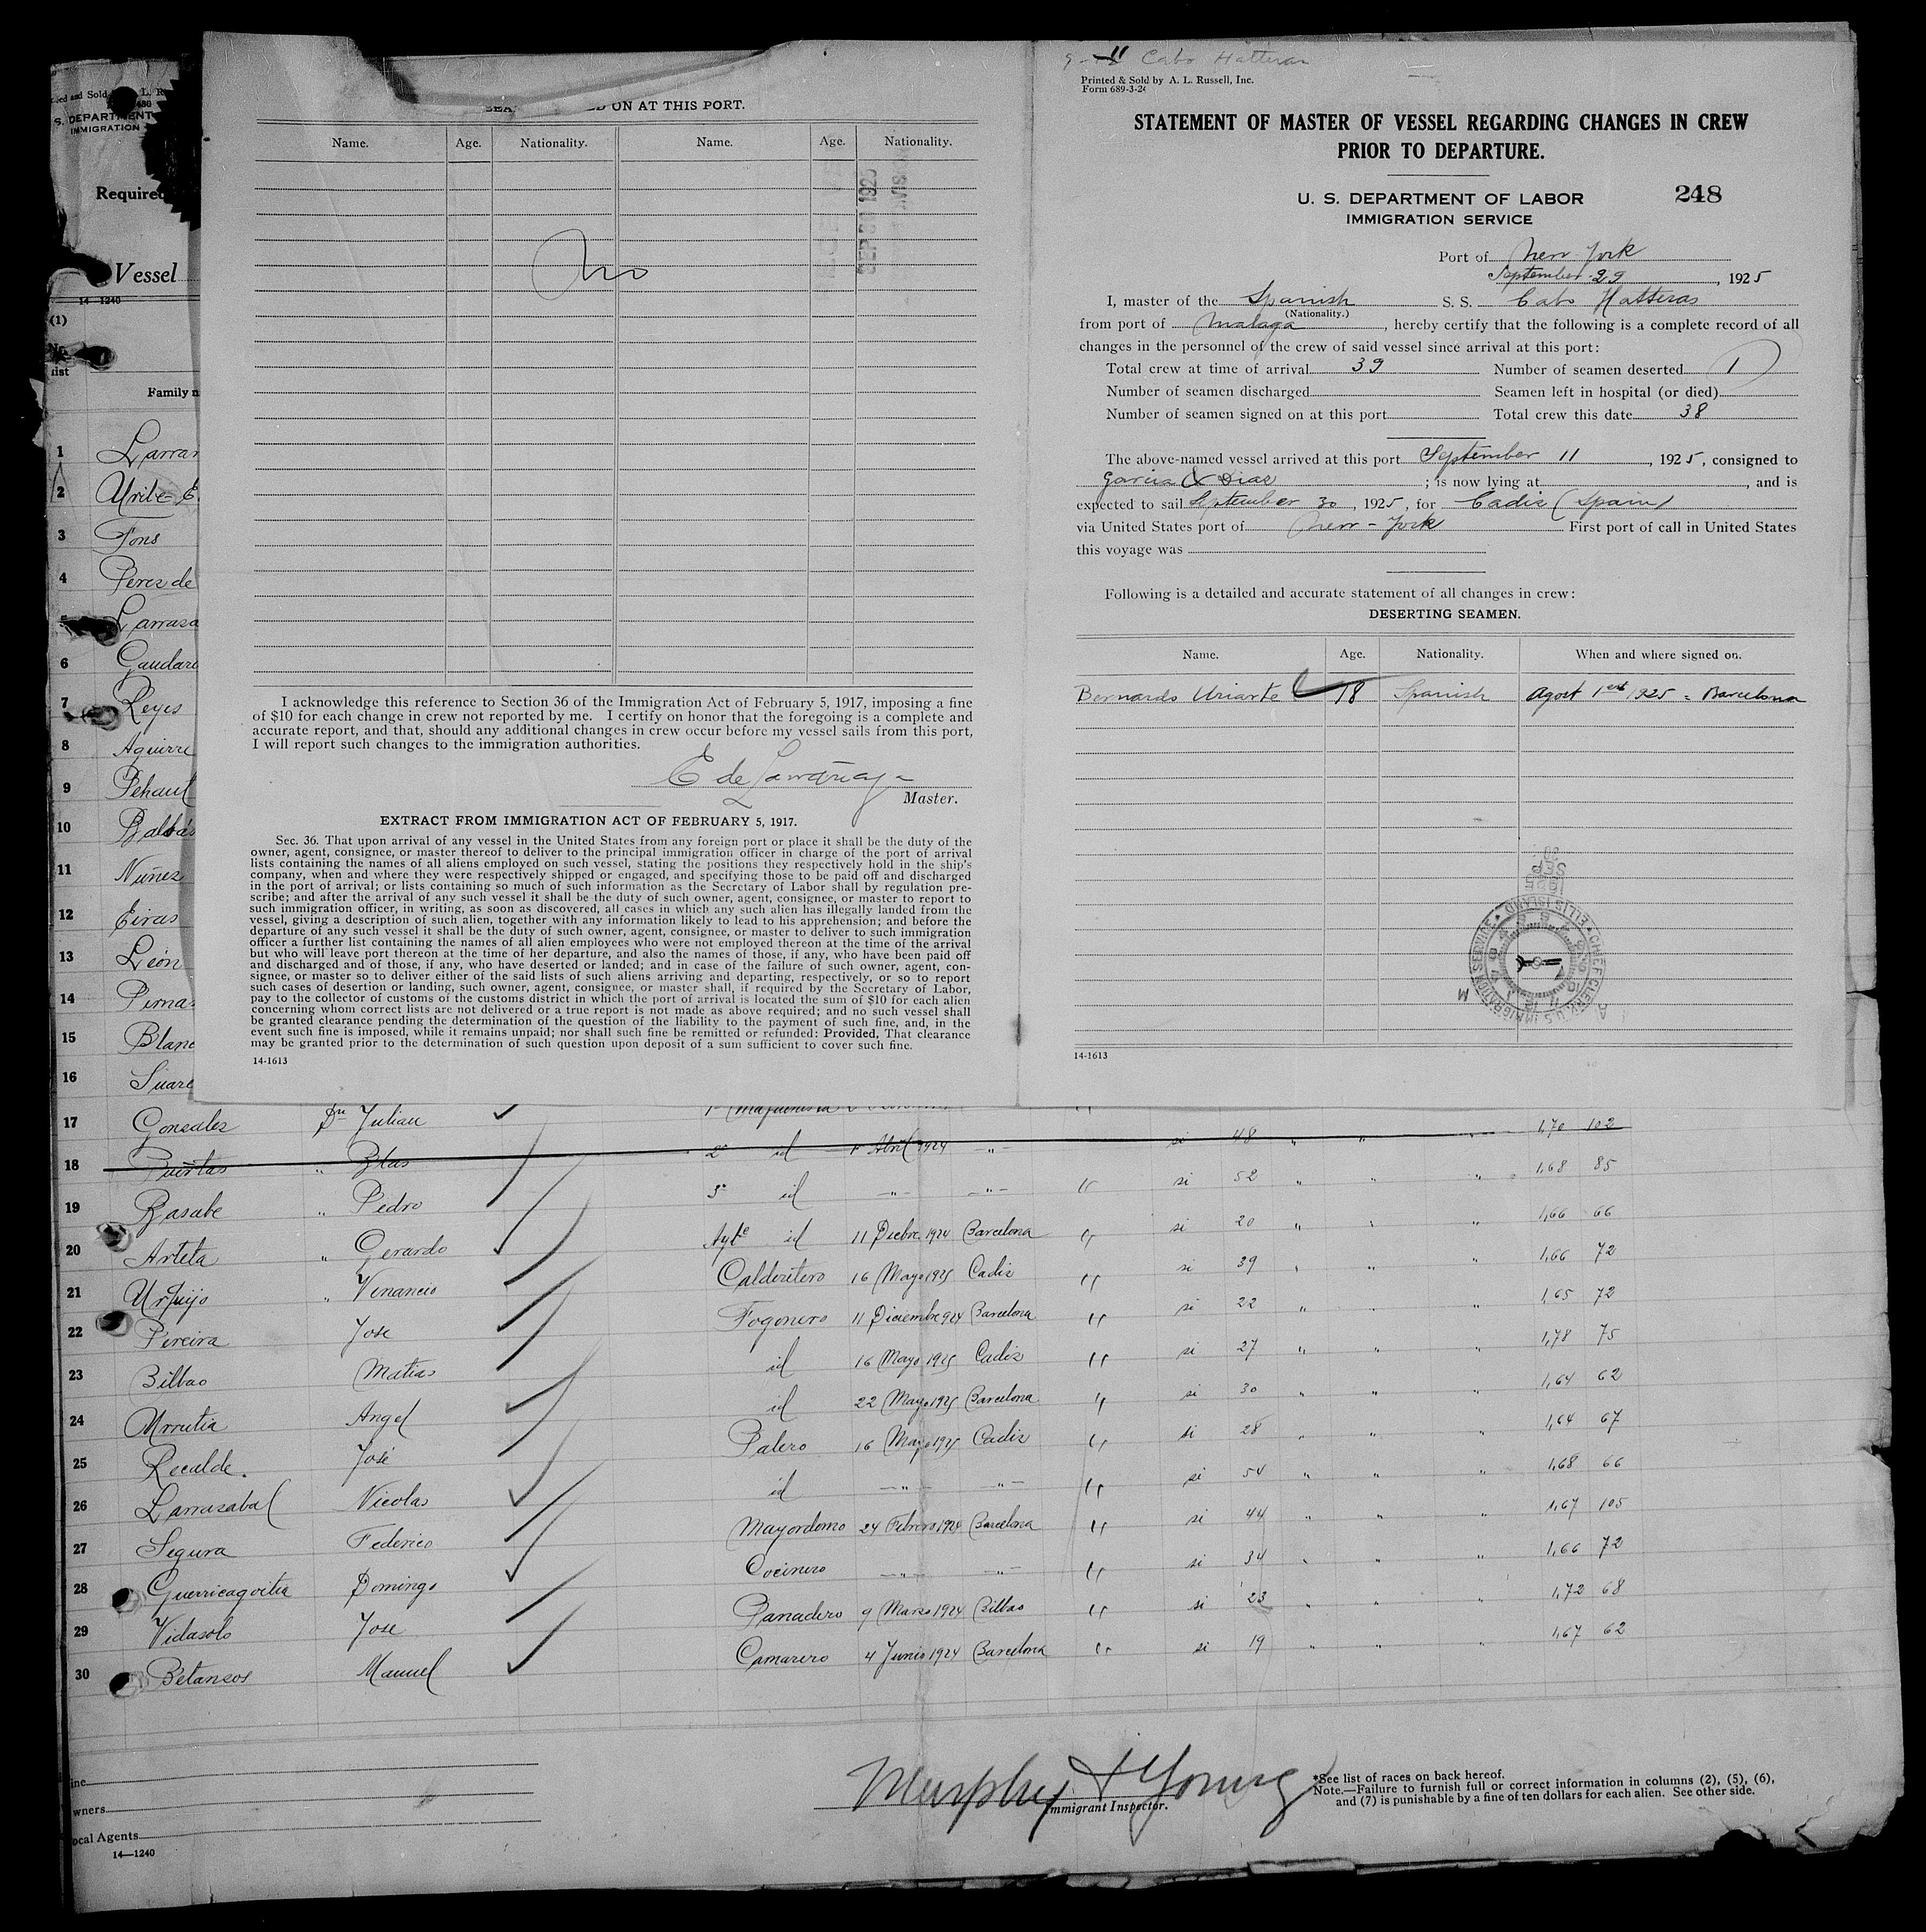 9-11 Cabo Hatteras
Printed & Sold by A. L. Russell, Inc.
Form 689-3-24
STATEMENT OF MASTER OF VESSEL REGARDING CHANGES IN CREW
PRIOR TO DEPARTURE.
U. S. DEPARTMENT OF LABOR
IMMIGRATION SERVICE
248
Port of New York
September 29, 1925
I, master of the Spanish S. S. Cabo Hatteras
(Nationality.)
from port of Malaga, hereby certify that the following is a complete record of all
changes in the personnel of the crew of said vessel since arrival at this port:
Total crew at time of arrival 39 Number of seamen deserted 1
Number of seamen discharged Seamen left in hospital (or died)
Number of seamen signed on at this port Total crew this date 38
The above-named vessel arrived at this port September 11, 1925, consigned to
Garcia & Diaz; is now lying at , and is
expected to sail September 30, 1925, for Cadiz (Spain)
via United States port of New-York First port of call in United States
this voyage was
Following is a detailed and accurate statement of all changes in crew:
DESERTING SEAMEN.
Name. Age. Nationality. When and where signed on.
Bernardo Uriarte 18 Spanish Agost 1est 1925 = Barcelona
CHIEF CLERK U.S. IMMIGRATION SERVICE • ELLIS ISLAND •
1925 SEP 30
A M
14-1613
ON AT THIS PORT.
Name. Age. Nationality. Name. Age. Nationality.
SEP 30 1925
No
I acknowledge this reference to Section 36 of the Immigration Act of February 5, 1917, imposing a fine
of $10 for each change in crew not reported by me. I certify on honor that the foregoing is a complete and
accurate report, and that, should any additional changes in crew occur before my vessel sails from this port,
I will report such changes to the immigration authorities.
E de Larrañaga
Master.
EXTRACT FROM IMMIGRATION ACT OF FEBRUARY 5, 1917.
Sec. 36. That upon arrival of any vessel in the United States from any foreign port or place it shall be the duty of the
owner, agent, consignee, or master thereof to deliver to the principal immigration officer in charge of the port of arrival
lists containing the names of all aliens employed on such vessel, stating the positions they respectively hold in the ship's
company, when and where they were respectively shipped or engaged, and specifying those to be paid off and discharged
in the port of arrival; or lists containing so much of such information as the Secretary of Labor shall by regulation pre-
scribe; and after the arrival of any such vessel it shall be the duty of such owner, agent, consignee, or master to report to
such immigration officer, in writing, as soon as discovered, all cases in which any such alien has illegally landed from the
vessel, giving a description of such alien, together with any information likely to lead to his apprehension; and before the
departure of any such vessel it shall be the duty of such owner, agent, consignee, or master to deliver to such immigration
officer a further list containing the names of all alien employees who were not employed thereon at the time of the arrival
but who will leave port thereon at the time of her departure, and also the names of those, if any, who have been paid off
and discharged and of those, if any, who have deserted or landed; and in case of the failure of such owner, agent, con-
signee, or master so to deliver either of the said lists of such aliens arriving and departing, respectively, or so to report
such cases of desertion or landing, such owner, agent, consignee, or master shall, if required by the Secretary of Labor,
pay to the collector of customs of the customs district in which the port of arrival is located the sum of $10 for each alien
concerning whom correct lists are not delivered or a true report is not made as above required; and no such vessel shall
be granted clearance pending the determination of the question of the liability to the payment of such fine, and, in the
event such fine is imposed, while it remains unpaid; nor shall such fine be remitted or refunded: Provided, That clearance
may be granted prior to the determination of such question upon deposit of a sum sufficient to cover such fine.
14-1613
S. DEPARTMENT
IMMIGRATION
Required
Vessel
14-1240
(1)
No.
list
Family n
1 Larrar
2 Uribe E
3 Fons
4 Perez de
5 Larraza
6 Gaudari
7 Reyes
8 Aguirre
9 Pehaul
10 Balbas
11 Nuñez
12 Eiras
13 Léon
14 Pimas
15 Blanc
16 Suare
17 Gonzalez Dn Julian 1º Maquinista
18 Puertas " Blas 2º id 1º Abril 1924 -"- si 48 " " " 1,70 102
19 Basabe " Pedro 3º id -"- -"- " si 52 " " " 1,68 85
20 Arteta " Gerardo Aydte id 11 Diebre 1924 Barcelona " si 20 " " " 1,66 66
21 Urquijo " Venancio Calderetero 16 Mayo 1925 Cadiz " si 39 " " " 1,66 72
22 Pereira Jose Fogonero 11 Diciembre 924 Barcelona " si 22 " " " 1,65 72
23 Bilbao Matias id 16 Mayo 1925 Cadiz " si 27 " " " 1,78 75
24 Urrutia Angel id 22 Mayo 1925 Barcelona " si 30 " " " 1,64 62
25 Recalde. José Palero 16 Mayo 1925 Cadiz " si 28 " " " 1,64 67
26 Larrazabal Nicolas id -"- -"- " si 54 " " " 1,68 66
27 Segura Federico Mayordomo 24 Febrero 1924 Barcelona " si 44 " " " 1,67 105
28 Guerricagoitia Domingo Cocinero -"- -"- " si 34 " " " 1,66 72
29 Vidasolo Jose Panadero 9 Marzo 1924 Bilbao " si 23 " " " 1,72 68
30 Betanzos Manuel Camarero 4 Junio 1924 Barcelona " si 19 " " " 1,67 62
ine
wners
ocal Agents
14—1240
Murphy & Young
Immigrant Inspector.
*See list of races on back hereof.
Note.—Failure to furnish full or correct information in columns (2), (5), (6),
and (7) is punishable by a fine of ten dollars for each alien. See other side.